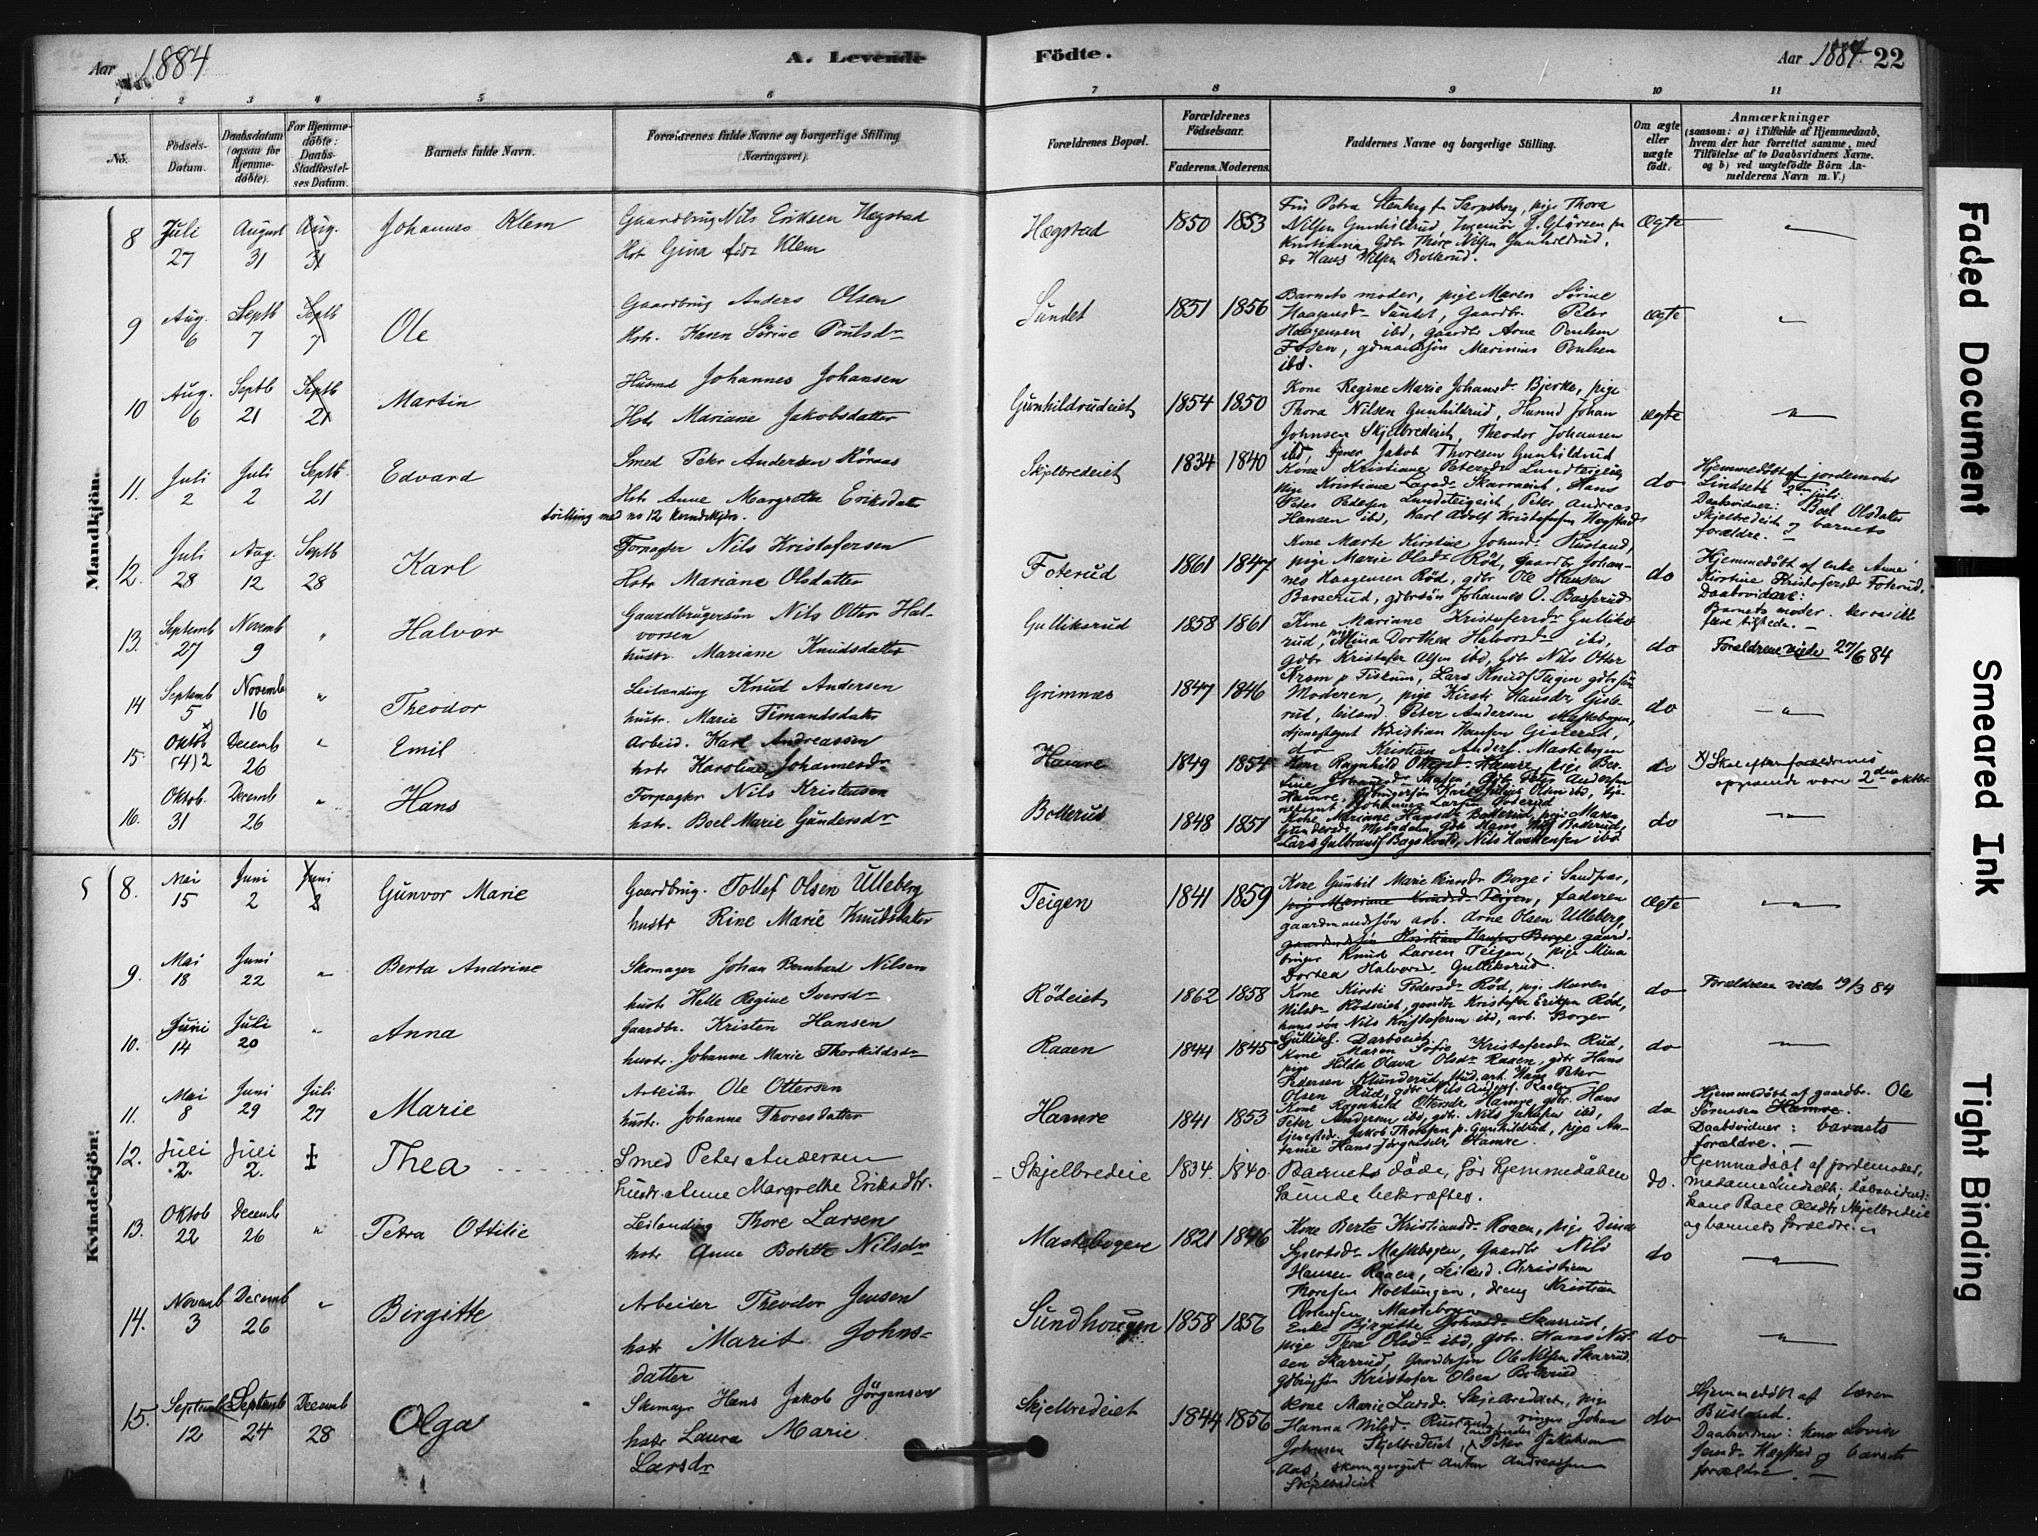 Aar 1884
A. Levende
Födte.
Aar 1884. 22
1 2 3 4 5 6 7 8 9 10 11
No.
Födsels-
Datum.
Daabsdatum
(ogsaa for
Hjemme-
döbte).
For Hjemme-
döbte:
Daabs-
Stadfæstel-
ses Datum.
Barnets fulde Navn.
Forældrenes fulde Navne og borgerlige Stilling
(Næringsvei).
Forældrenes Bopæl.
Forældrenes
Födselsaar.
Faderens. Moderens.
Faddernes Navne og borgerlige Stilling.
Om ægte
eller
uægte
födt.
Anmærkninger
(saasom: a) i Tilfælde af Hjemmedaab,
hvem der har forrettet samme, med
Tilföielse af to Daabsvidners Navne.
og b) ved uægtefödte Börn An-
melderens Navn m. V.)
Mandkjön.
8 Juli 27 August 31 Aug. 31 Johannes Klem
Gaardbrug Nils Eriksen Hegstad
Hst Gina fdr Klem
Hægstad 1850 1853
Fru Petra Stenberg fr Sarpsborg, pige Thora
Nilsen Gunhildrud, Ingeniör
Kristiania, Gdbr Thore Nilsen Gunhildrud,
do Hans Nilsen Bollerud.
Ægte
9 Aug. 6 Septb 7 Septb 7 Ole
Gaardbrug Anders Olsen
Hstr. Karen Sörine Poulsdr
Sundet 1851 1856
Barnets moder, pige Maren Sörine
Haagensdr Sundet, Gaardbr. Peter
Haagensen ibd, gaardbr Arne Poulsen
Fosen, gdmandssön Marinius Poulsen
ibd.
ægte
10 Aug. 6 Septb 21 Septb 21 Martin
Husmd Johannes Johansen
Hstr Mariane Jakobsdatter
Gunhildrudeiet 1854 1850
Kone Regine Marie Johansdr Bjerke, pige
Thora Nilsen Gunhildrud, Husmd Johan
Johnsen Skjelbredeiet, Theodor Johansen
ibd, Jakob Thoresen Gunhildrud
ægte
11. Juli 2 Juli 2 Septb. 21 Edvard
Smed Peter Andersen Röraas
Hstr Anne Margrethe Eriksdatter
tvilling med no 12 kvindekjön.
Skjelbredeiet 1834 1840
Kone Kristiane Petersdr Lundteigeiet,
pige Kristiane Larsdr Skarraeiet, Hans
Peter Pedersen Lundsteigeiet, Peter Andreas
Hansen ibd, Karl Adolf Kristofersen Hogstad
do
Hjemmedöbt af jordemoder
Lindseth 2den juli.
Daabsvidner: Boel Olsdatter
Skjelbredeiet og barnets
forældre. –
12. Juli 28 Aug. 12 Septb 28 Karl
Forpagter Nils Kristofersen
Hstr Mariane Olsdatter
Foterud 1861 1847
Kone Marte Kirstine Johnsdr Rustand,
pige Marie Olsdr Röd, Gaardbr Johan-
nes Haagensen Röd, gdbr Ole Hansen
Basserud, gdbrsön Johannes O. Basserud
do
Hjemmedöbt af enke Anne
Kirstine Kristofersdr Foterud,
Daabsvidner:
Barnets moder.
13. Septemb 27 Novemb 9 " Halvor
Gaardbrugersön Nils Otter Hal-
vorsen
hustr. Mariane Knudsdatter
Gulliksrud 1858 1861
Kone Mariane Kristofersdr Gulliks-
rud, pige Mina Dorthea Halvorsdr ibd,
gdbr Kristofer Olsen ibd, Gdbr Nils Otter
Nrom p Fiskum, Lars Knudsen Teigen gdbrsön
do
Forældrene viede 27/6 84
14 Septemb 5 Novemb 16 " Theodor
Leilending Knud Andersen
hustr. Marie Timandsdatter
Grimnæs 1847 1846
Moderen, pige Kirsti Hansdr Giste-
rud, leilend. Peter Andersen Mastebogen,
tjenestegut Kristian Hansen Gisterud,
do Kristian Anders. Mastebogen
do
15. Oktob (4) 2 Decemb 26 " Emil
Arbeid. Karl Andreassen
hstr Karoline Johannesdr
Hamre 1849 1854
Kone Ragnhild Ottersdr Hamre, pige Ber-
do
x) Skal efter forældrenes
opgivende være 2den oktbr.
16. Oktob. 31 Decemb 26 " Hans
Forpagter Nils Kristensen
hstr. Boel Marie Gundersdr
Bollerud 1848 1851
Kone Mariane Hansdr Bollerud, pige Maren
Gundersdr Mjöndalen, gdbr Hans Nils Bollerud,
Lars Gulbrands Bagskvold, Nils Haakensen ibd
do
Kvindekjön.
8. Mai 15 Juni 2 Juni 2 Gunvor Marie
Gaardbrug. Tollef Olsen Ulleberg
hustr Rine Marie Knudsdatter
Teigen 1841 1859
Kone Gunhil Marie Reiersdr Borge i Sandsvær,
pige Mariane Knudsdr Teigen, faderen
gaardmandssön arb. Arne Olsen Ulleberg,
gaardmdssön Kristian Hansen Borge gaard-
bruger Knud Larsen Teigen, pige Mina
Dortea Halvorsdr Gulliksrud.
Ægte
9. Mai 18 Juni 22 " Berta Andrine
Skomager Johan Bernhard Nilsen
hustr Helle Regine Iversdr
Rödeiet 1862 1858
Kone Kirsti Pedersdr Röd, pige Maren
Nilsdr Rödseiet, gaardbr Kristofer Eriksen Röd,
hans sön Nils Kristofersen ibd, arb. Borger
Gulliks. Darboeiet
do
Forældrene viede 19/3 84
10. Juni 14 Juli 20 " Anna
Gaardbr. Kristen Hansen
hustr. Johanne Marie Thorkildsdr
Raaen 1844 1845
Kone Maren Sofie Kristofersdr Rud,
pige Hilda Olava Olsdr Raaen, gdbr Hans
Pedersen Klunderud, Stud. art. Hans Peter
Olsen Rud, gdbr Nils Anders. Raaen
do
11. Mai 8 Juni 29 Juli 27 Marie
Arbeider Ole Ottersen
hustr. Johanne Thoresdatter
Hamre 1841 1853
Kone Ragnhild Ottersdr Hamre, gdbr. Hans
Peter Andersen ibd, gdbr. Nils Jakobsen ibd,
tjenestedr. Jakob Thoresen p. Gunhildrud, pige An-
tine Hans Jörgensdr Hamre.
do
Hjemmedöbt af gaardbr. Ole
Sörensen Hamre.
Daabsvidner: barnets
forældre. –
12. Juli 2. Juli 2. ‡ Thea
Smed Peter Andersen
hustr. Anne Margrethe Eriksdtr.
Skjelbredeie 1834. 1840.
Barnets döde, för hjemmedåben
kunde bekræftes.
do.
Hjemmedöbt af jordemoder,
madame Lindseth; dåbsvidner:
kone Boel Olsdtr Skjelbredeie
og barnets forældre. –
13. Oktob 22 Decemb 26 " Petra Ottilie
Leilending Thore Larsen
hstr Anne Bolette Nilsdr
Mastebogen 1821 1846
Kone Berte Kristiansdr Raaen, pige Dina
Syvertsdr Mastebogen, Gaardbr Nils
Hansen Raaen, Leilend. Christian
Thoresen Holtungen, dreng Kristian
Ottersen Mastebogen
do
14. Novemb 3 Decemb 26 " Birgitte
Arbeider Theodor Jensen
hstr Marit Johns-
datter
Sundhougen 1858 1856
Enke Birgitte Johnsdr Skarrud,
pige Thea Olsdr ibd, gdbr. Hans Nil-
sen Skarrud, Gaardbrsön Ole Nilsen Skarrud
Gdbrgsön Kristofer Olsen Bollerud
do
15. Septemb 12 Septemb 24 Decemb 28 Olga
Skomagr Hans Jakob Jörgensen
hstr Laura Marie
Larsdr
Skjelbredeiet 1844 1856
Kone Marie Larsdr Skjelbredeiet, pige
Hanna Nilsdr Rustand, ringer Johan
Johnsen Skjelbredeiet, landhandler Peter Jakobsen
Aas, skomagergut Anton Andreassen
Skjelbredeiet
do
Hjemmedöbt af lærer
Busland.
Daabsvidner: kone Lovise
Jensdr Hægstad og barnets
forældre. –
Faded Document
Smeared Ink
Tight Binding